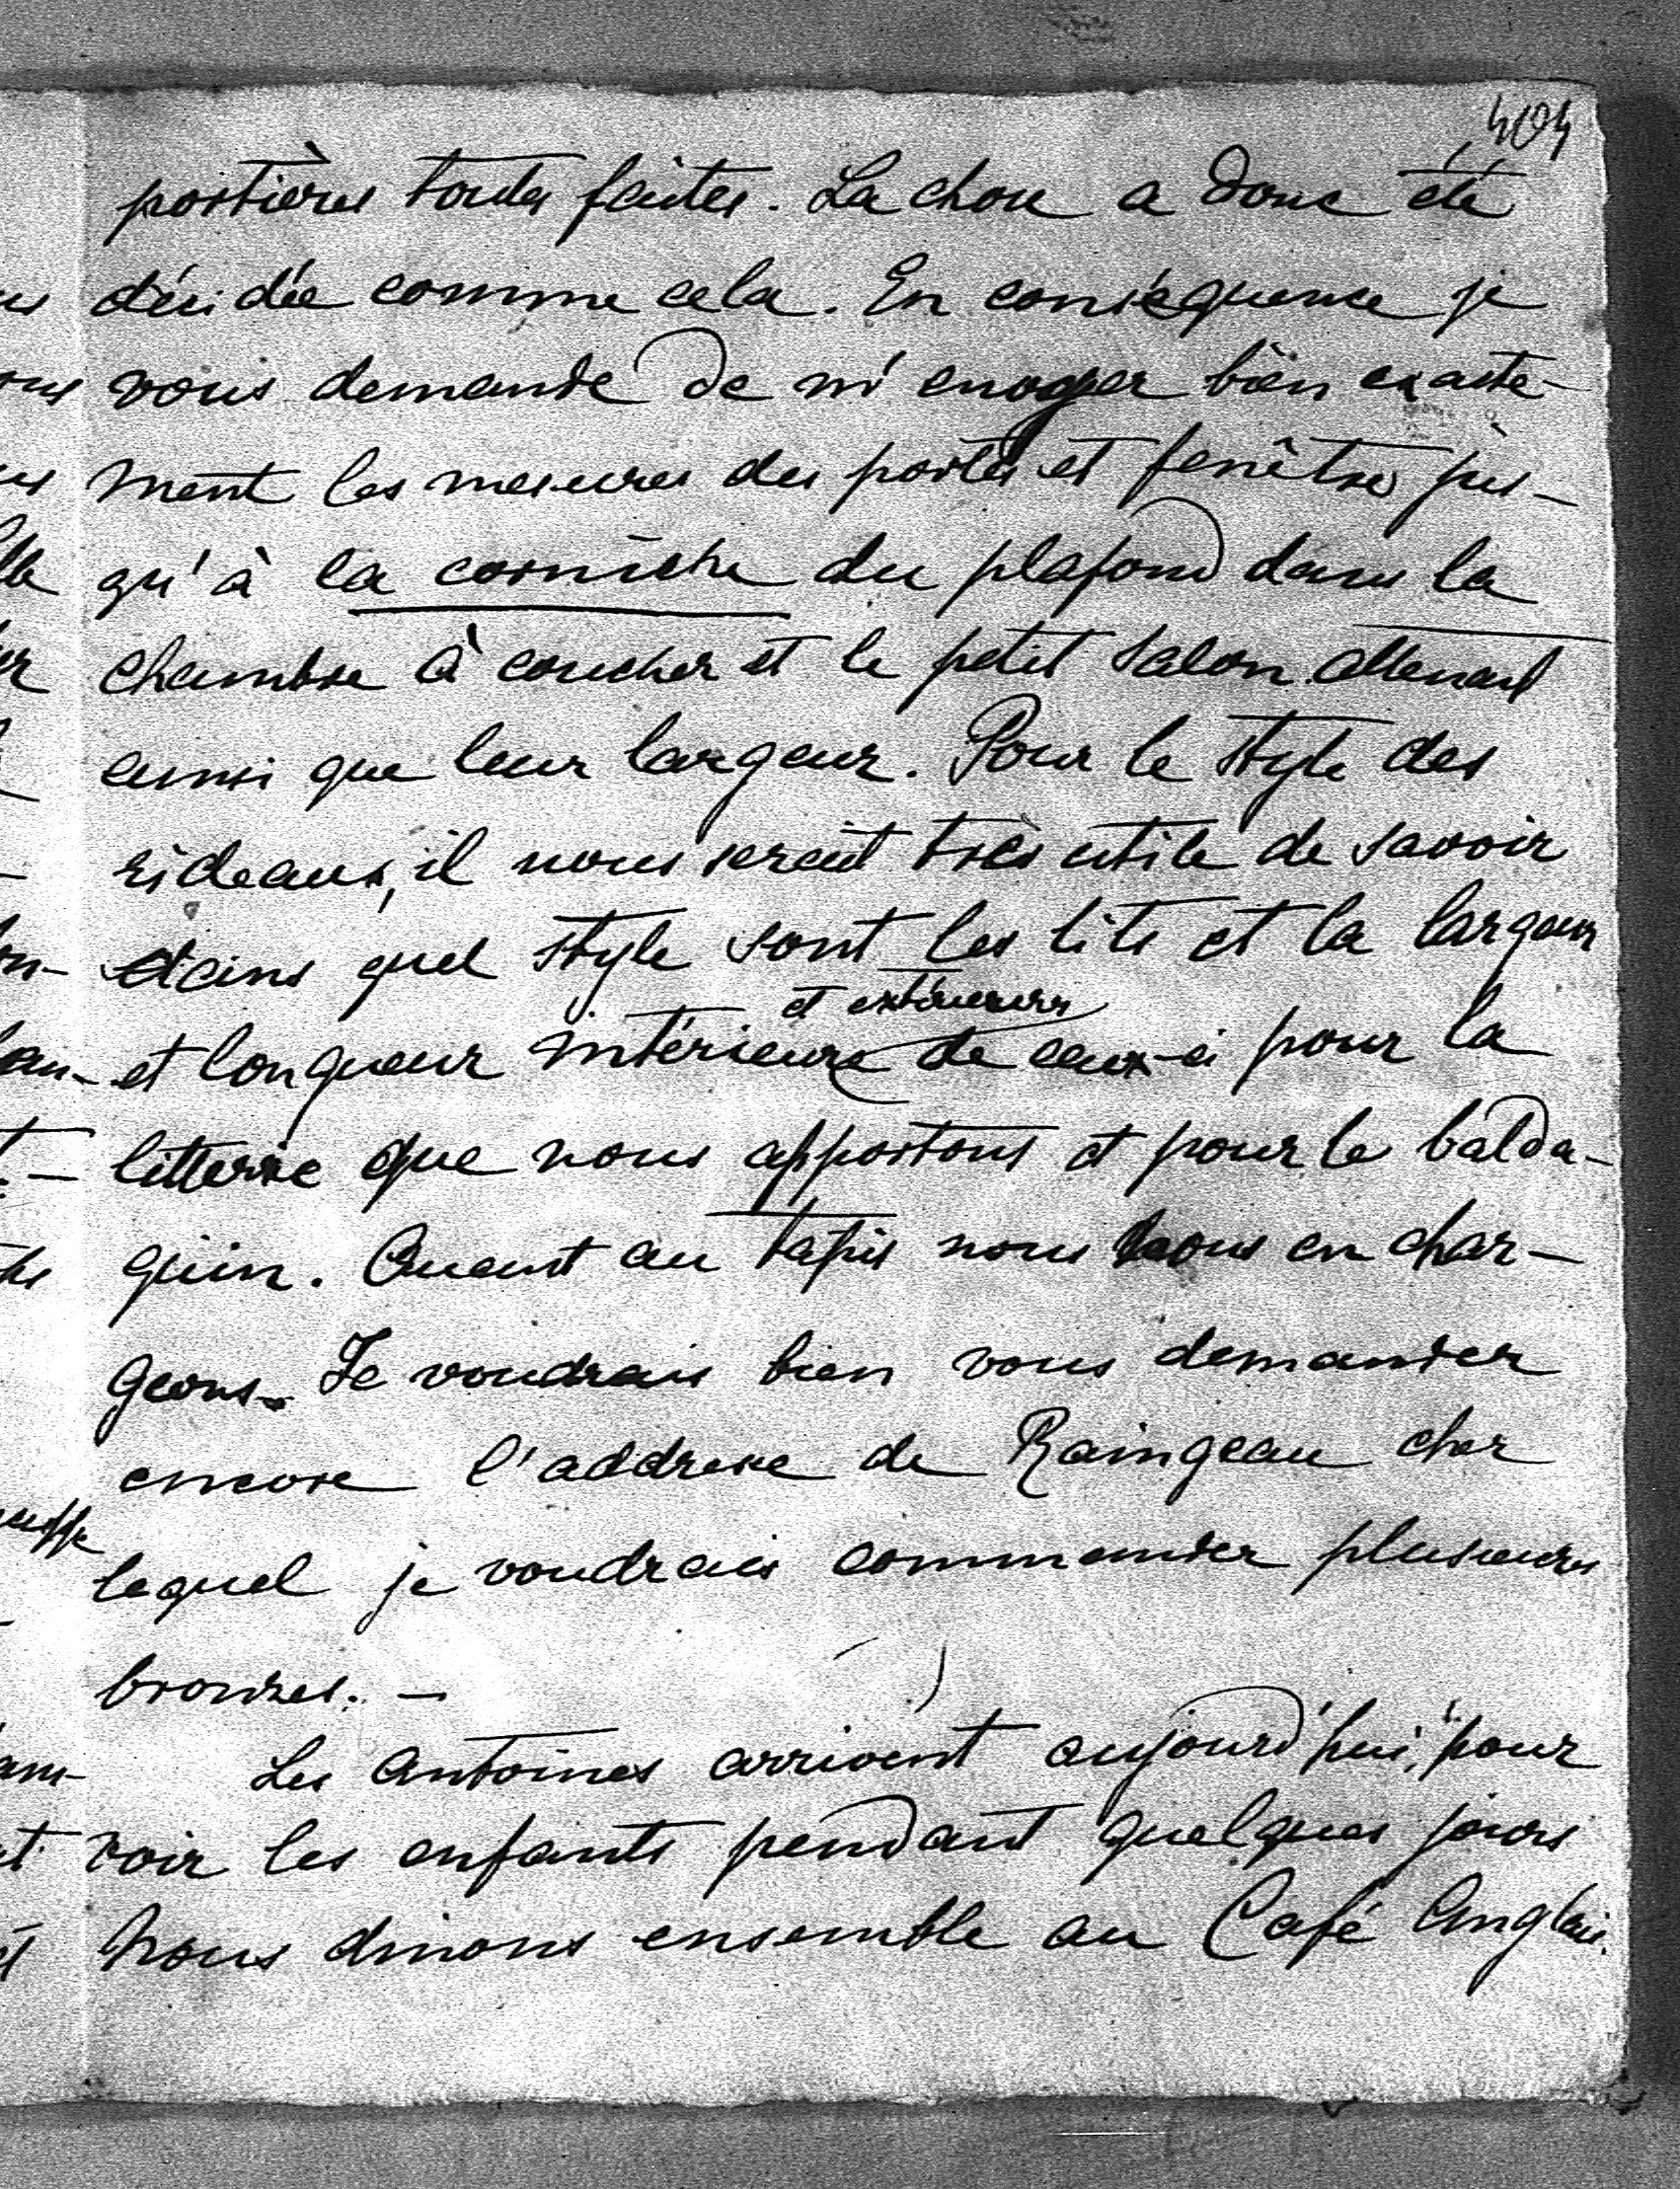 404
portières toutes faites. La chose a donc été
décidée comme cela. En conséquence je
vous demande de m'envoyer bien exacte-
ment les mesures des portes et fenêtres jus-
qu'à la corniche du plafond dans la
chambre à coucher et le petit salon attenant
ainsi que leur largeur. Pour le style des
rideaux, il nous serait très utile de savoir
dans quel style sont les lits et la largeur
et extérieures
et longueur intérieure de ceux-ci pour la
litterie que nous apportons et pour le balda-
quin. Quant au tapis nous nous en char-
geons. Je voudrais bien vous demander
encore l'addresse de Raingeau chez
lequel je voudrais commander plusieurs
bronzes. -
Les Antoines arrivent aujourd'hui, pour
voir les enfants pendant quelques jours
Nous dinons ensemble au Café Anglais.